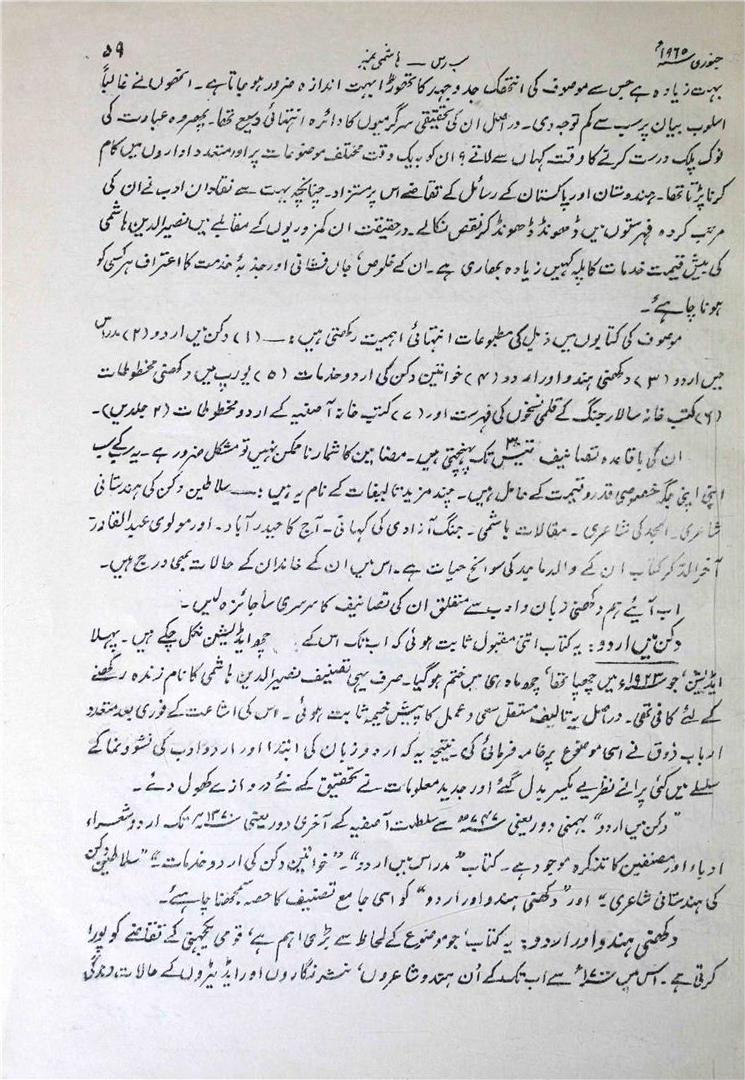 جنوری ۱۹۶۵ء
سب رس — ہاشمی نمبر
۵۹
بہت زیادہ ہے جس سے موصوف کی انتھک جدوجہد کا تھوڑا بہت اندازہ ضرور ہو جاتا ہے۔ انھوں نے غالباً
اسلوب بیان پر سب سے کم توجہ دی۔ دراصل ان کی تحقیقی سرگرمیوں کا دائرہ انتہائی وسیع تھا۔ پھر وہ عبارت کی
نوک پلک درست کرنے کا وقت کہاں سے لاتے؟ ان کو بہ یک وقت مختلف موضوعات پر اور متعدد اداروں میں کام
کرنا پڑتا تھا۔ ہندوستان اور پاکستان کے رسائل کے تقاضے اس پر مستزاد۔ چنانچہ بہت سے نقادان ادب نے ان کی
مرتب کردہ فہرستوں میں ڈھونڈ ڈھونڈ کر نقص نکالے۔ درحقیقت ان کمزوریوں کے مقابلے میں نصیر الدین ہاشمی
کی بیش قیمت خدمات کا پلہ کہیں زیادہ بھاری ہے۔ ان کے خلوص، جاں فشانی اور جذبۂ خدمت کا اعتراف ہر کسی کو
ہونا چاہئے۔
موصوف کی کتابوں میں ذیل کی مطبوعات انتہائی اہمیت رکھتی ہیں:— (۱) دکن میں اردو (۲) مدراس
میں اردو (۳) دکھنی ہندو اور اردو (۴) خواتین دکن کی اردو خدمات (۵) یورپ میں دکھنی مخطوطات
(۶) کتب خانہ سالار جنگ کے قلمی نسخوں کی فہرست اور (۷) کتب خانۂ آصفیہ کے اردو مخطوطات (۲ جلدیں)۔
ان کی باقاعدہ تصانیف تیس تک پہنچتی ہیں۔ مضامین کا شمار ناممکن نہیں تو مشکل ضرور ہے۔ یہ سب کے سب
اپنی اپنی جگہ خصوصی قدر و قیمت کے حامل ہیں۔ چند مزید تالیفات کے نام یہ ہیں:— سلاطین دکن کی ہندستانی
شاعری۔ امجد کی شاعری۔ مقالات ہاشمی۔ جنگ آزادی کی کہانی۔ آج کا حیدرآباد۔ اور مولوی عبدالقادر۔
آخر الذکر کتاب ان کے والد ماجد کی سوانح حیات ہے۔ اس میں ان کے خاندان کے حالات بھی درج ہیں۔
اب آیئے ہم دکھنی زبان و ادب سے متعلق ان کی تصانیف کا سرسری سا جائزہ لیں۔
دکن میں اردو: یہ کتاب اتنی مقبول ثابت ہوئی کہ اب تک اس کے چھ ایڈیشن نکل چکے ہیں۔ پہلا
ایڈیشن، جو ۱۹۲۳ء میں چھپا تھا، چھ ماہ ہی میں ختم ہو گیا۔ صرف یہی تصنیف نصیر الدین ہاشمی کا نام زندہ رکھنے
کے لئے کافی تھی۔ دراصل یہ تالیف مستقل سعی و عمل کا پیش خیمہ ثابت ہوئی۔ اس کی اشاعت کے فوری بعد متعدد
ارباب ذوق نے اسی موضوع پر خامہ فرمائی کی۔ نتیجہ یہ کہ اردو زبان کی ابتدا اور اردو ادب کی نشوونما کے
سلسلے میں کئی پرانے نظریے یکسر بدل گئے اور جدید معلومات نے تحقیق کے نئے دروازے کھول دئے۔
”دکن میں اردو“ بہمنی دور یعنی ۷۴۷ھ سے سلطنت آصفیہ کے آخری دور یعنی ۱۳۷۰ھ تک اردو شعراء
ادباء اور مصنفین کا تذکرہ موجود ہے۔ کتاب ”مدراس میں اردو“۔ ”خواتین دکن کی اردو خدمات“۔ ”سلاطین دکن
کی ہندستانی شاعری“ اور ”دکھنی ہندو اور اردو“ کو اسی جامع تصنیف کا حصہ سمجھنا چاہئے۔
دکھنی ہندو اور اردو: یہ کتاب، جو موضوع کے لحاظ سے بڑی اہم ہے، قومی یکجہتی کے تقاضے کو پورا
کرتی ہے۔ اس میں ۱۷۰۰ء سے اب تک کے اُن ہندو شاعروں، نثر نگاروں اور ایڈیٹروں کے حالات زندگی